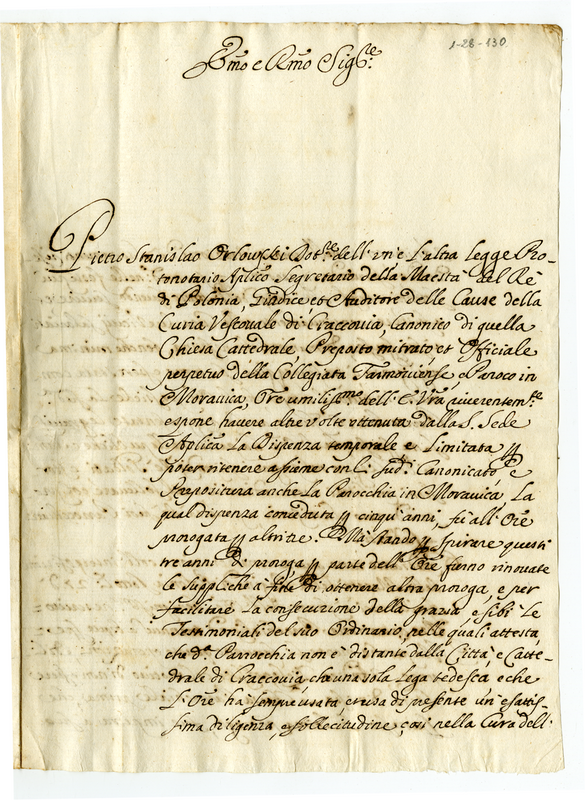 1-28-130
Emo e Rmo Sigre:
Pietro Stanislao Orlowski Dotre dell'un' e l'altra Legge Pro-
tonotario Aplico Segretario della Maestà del Rè
di Polonia, Giudice et Auditore delle Cause della
Curia Vescovale di Craccovia, Canonico di quella
Chiesa Cattedrale, Preposto mitrato et Officiale
perpetuo della Collegiata Tarnoviense, e Paroco in
Moravica, Ore umilissmo dell' E. Vra riverentemte
espone havere altre volte ottenuta dalla S. Sede
Aplica la Dispenza temporale e limitata p
poter ritenere assieme con li sudi Canonicato, e
Prepositura anche la Parocchia in Moravica, la
qual dispenza conceduta p cinqu' anni, fù all' Ore
prorogata p altri tre. Ma stando p spirare questi
tre anni di proroga p parte dell' Ore furno rinovate
le suppliche a fine di ottenere altra proroga, e per
facilitare la consecuzione della grazia, esibì le
Testimoniali del suo Ordinario, nelle quali attesta,
che da Parrocchia non è distante dalla Città, e Catte-
drale di Craccovia, che una sola Lega tedesca, e che
l' Ore ha sempre usata, et usa di presente un' esattis-
sima diligenza, e sollecitudine, così nella Cura dell'